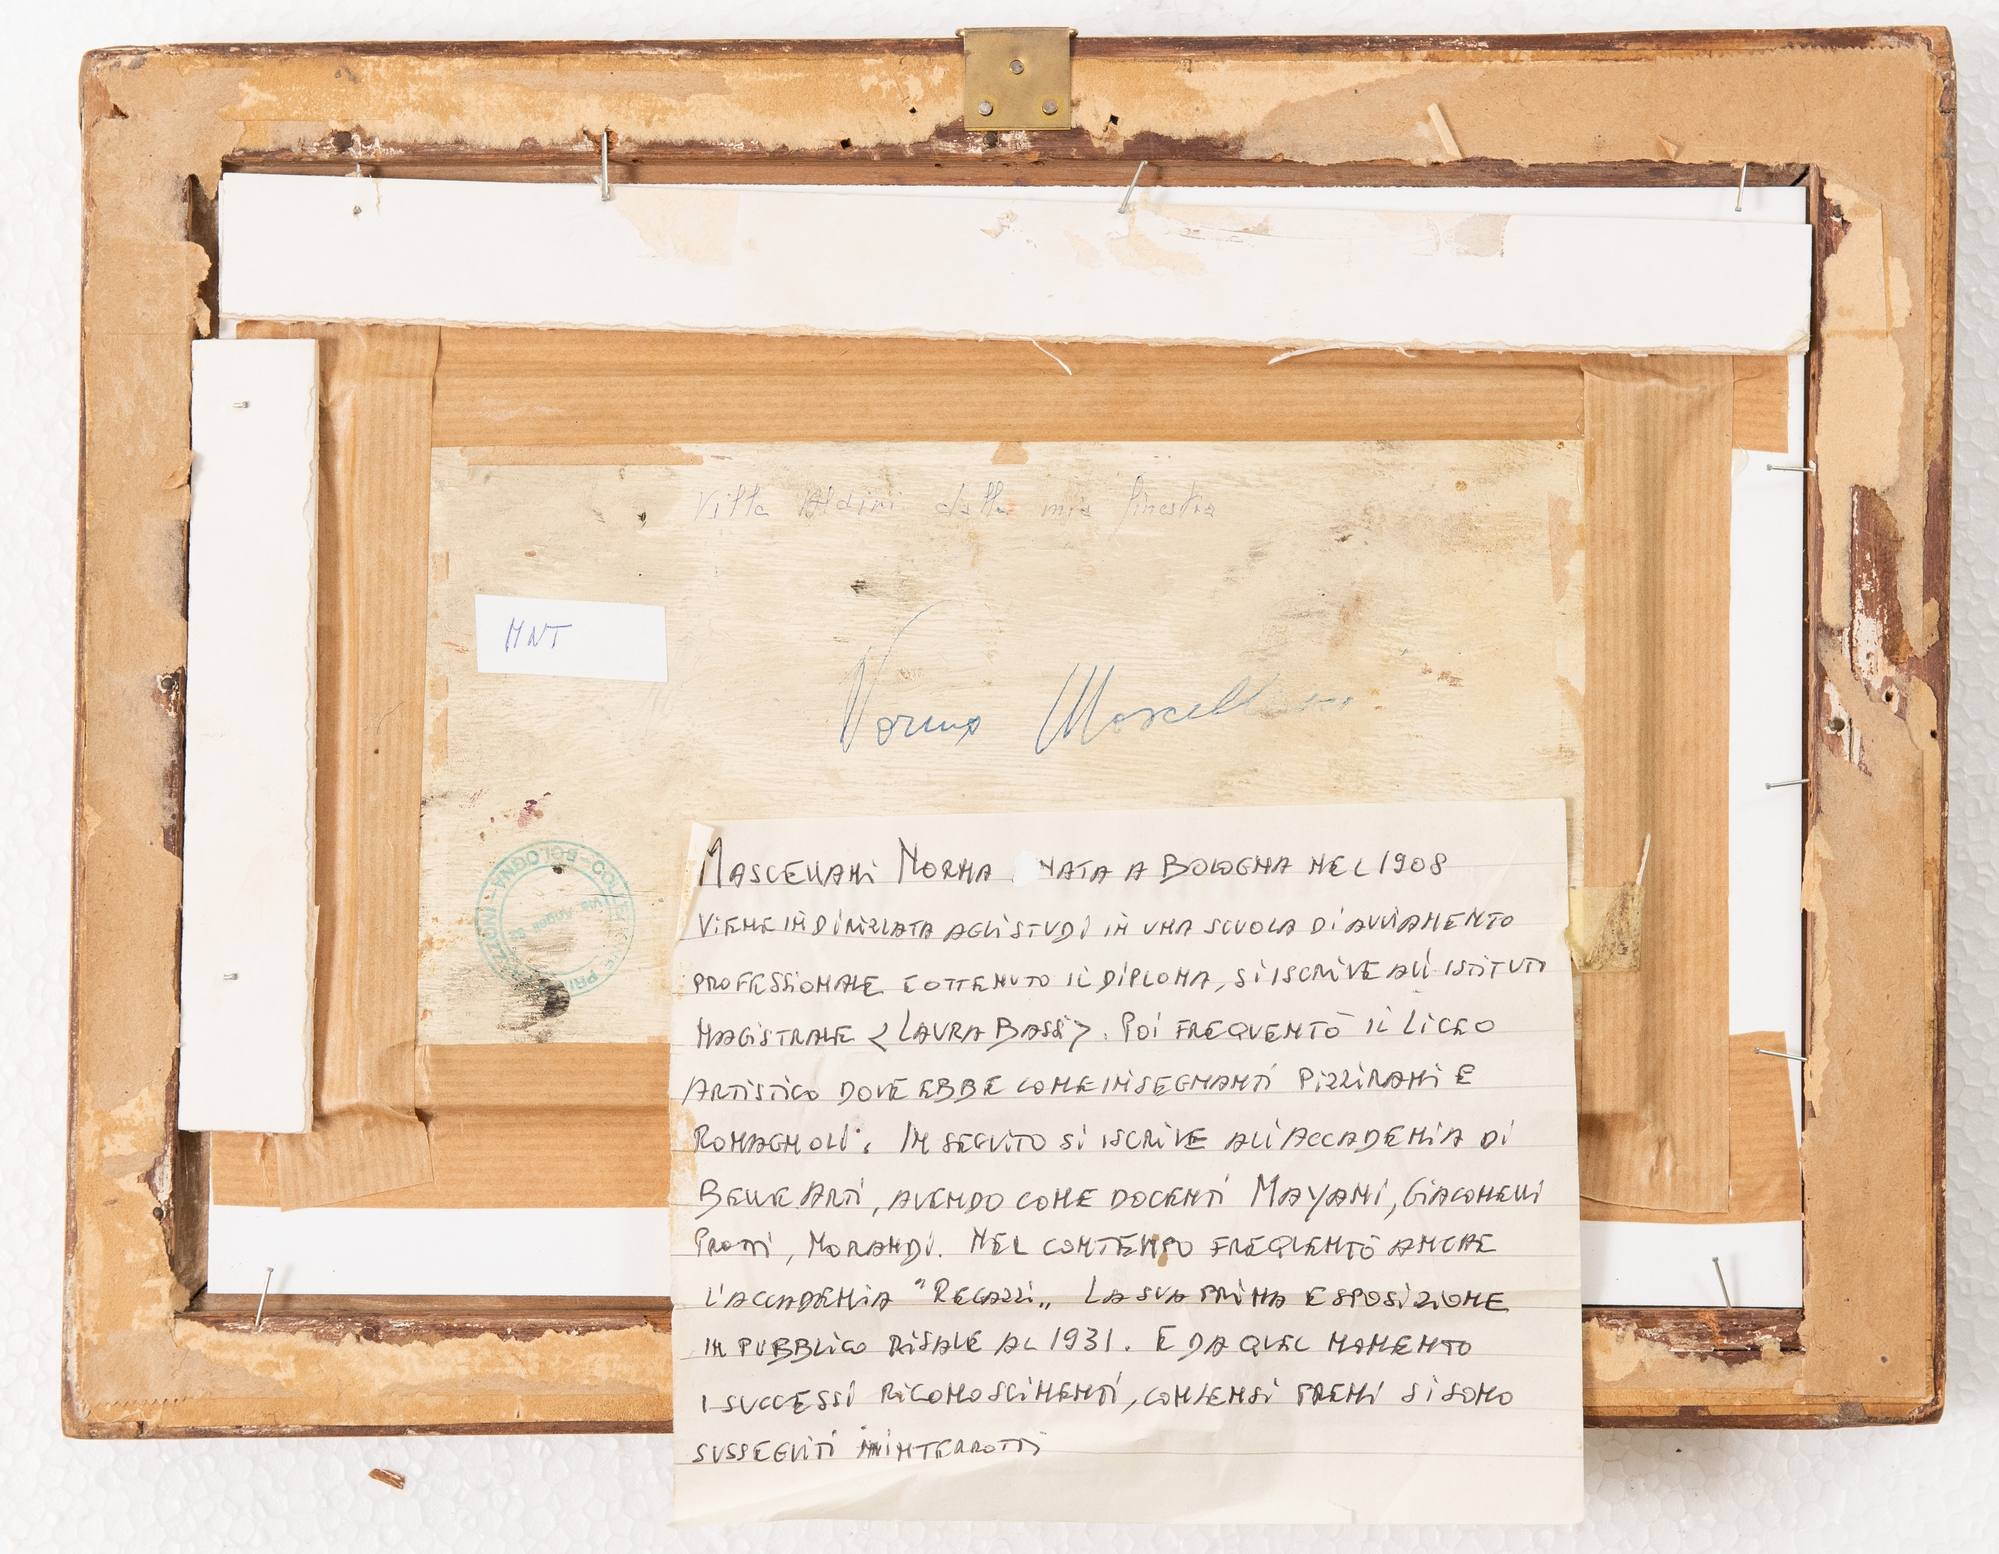 Villa Aldini dalla mia finestra
MNT
Norma Mascellani
BOLOGNA
MASCELLANI NORMA NATA A BOLOGNA NEL 1908
VIENE INDIRIZZATA AGLI STUDI IN UNA SCUOLA DI AVVIAMENTO
PROFESSIONALE E OTTENUTO IL DIPLOMA, SI ISCRIVE ALL ISTITUTO
MAGISTRALE < LAURA BASSI >. POI FREQUENTÒ IL LICEO
ARTISTICO DOVE EBBE COME INSEGNANTI PIZZIRANI E
ROMAGNOLI. IN SEGUITO SI ISCRIVE ALL'ACCADEMIA DI
BELLE ARTI, AVENDO COME DOCENTI MAYANI, GIACOMELLI
PROTTI, MORANDI. NEL CONTEMPO FREQUENTÒ ANCHE
L'ACCADEMIA "REGAZZI„ LA SUA PRIMA ESPOSIZIONE
IN PUBBLICO RISALE AL 1931. E DA QUEL MOMENTO
I SUCCESSI RICONOSCIMENTI, CONSENSI PREMI SI SONO
SUSSEGUITI ININTERROTTI